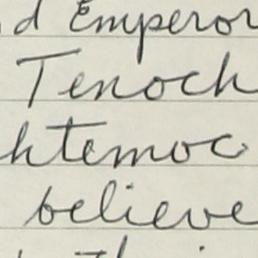 d Emperor
Tenoch
htemoc
believe